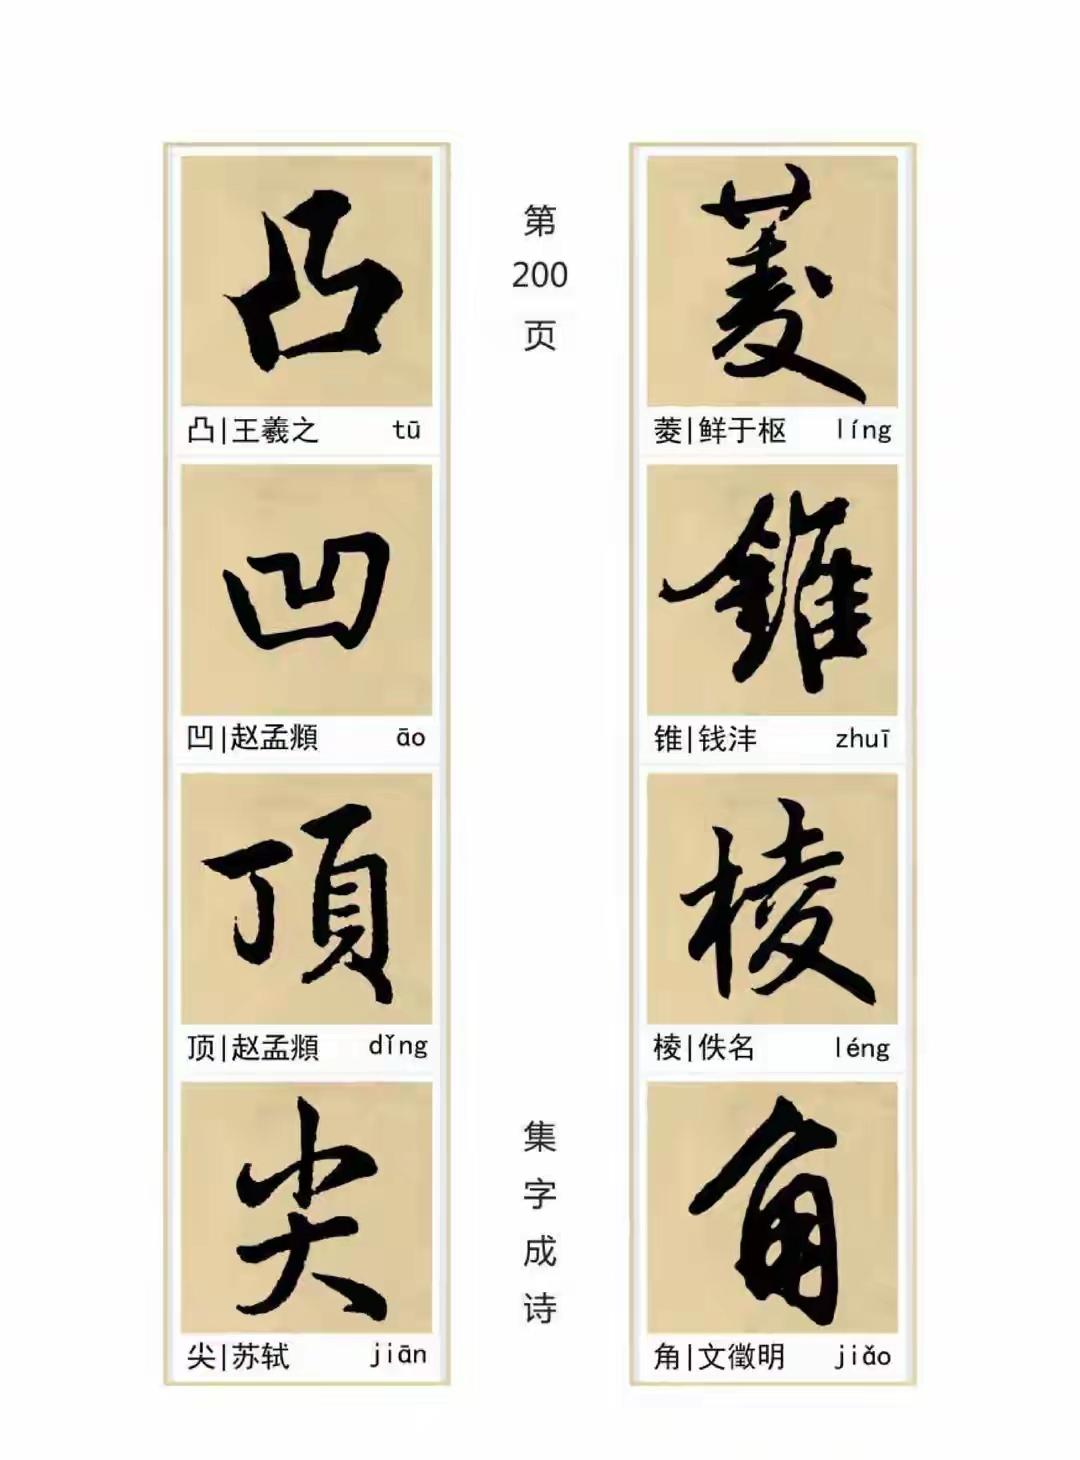 凸
凸|王羲之 tū
凹
凹|赵孟頫 āo
頂
顶|赵孟頫 dǐng
尖
尖|苏轼 jiān
第
200
页
集
字
成
诗
菱
菱|鲜于枢 líng
錐
锥|钱沣 zhuī
棱
棱|佚名 léng
角
角|文徵明 jiǎo